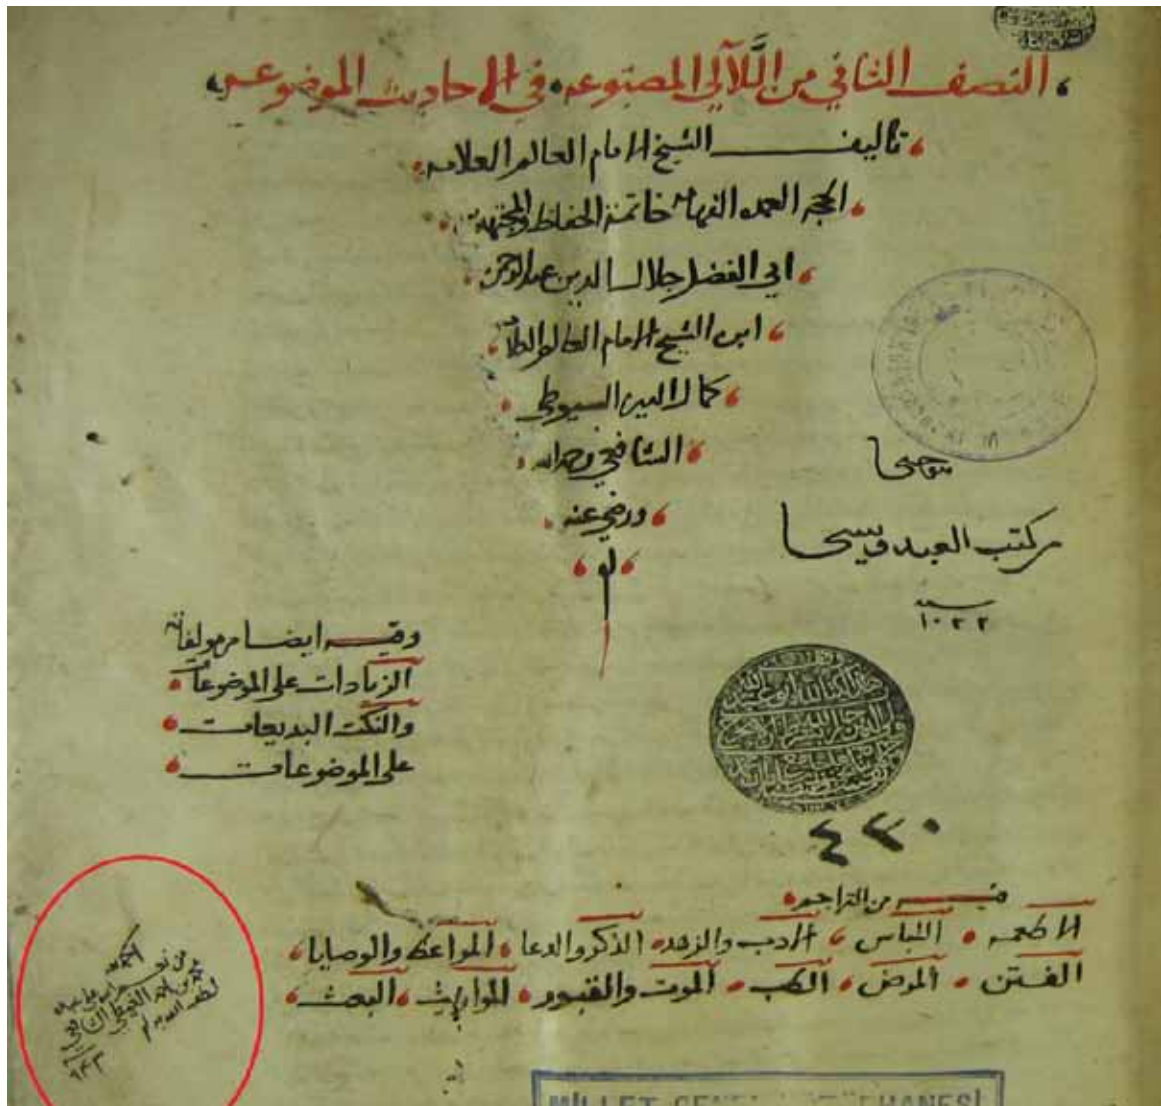 النصف الثاني من اللَّآلي المصنوعه في الاحاديث الموضوعه
تاليف الشيخ الامام العالم العلامه
الحجه العمده الفهامه خاتمة الحفاظ والمجتهدين
ابي الفضل جلال الدين عبد الرحمن
ابن الشيخ الامام العالم العلامة
كمال الدين السيوطي
الشافعي رحمه الله
ورضي عنه
من كتب العبد فيض
سنه
١٠٢٢
وفيه ايضا من مولفاته
الزيادات على الموضوعات
والنكت البديعات
على الموضوعات
٤٣٠
فيه من التراجم
الاطعمه اللباس الادب والزهد الذكر والدعا المواعظ والوصايا
الفتن المرض الطب الموت والقبور المواريث البعث
الحمد لله
من نعم الله على عبده
محمد بن احمد الغيطي الشافعي
لطف الله به
٩٤٣
MİLLET GENEL KÜTÜPHANESİ